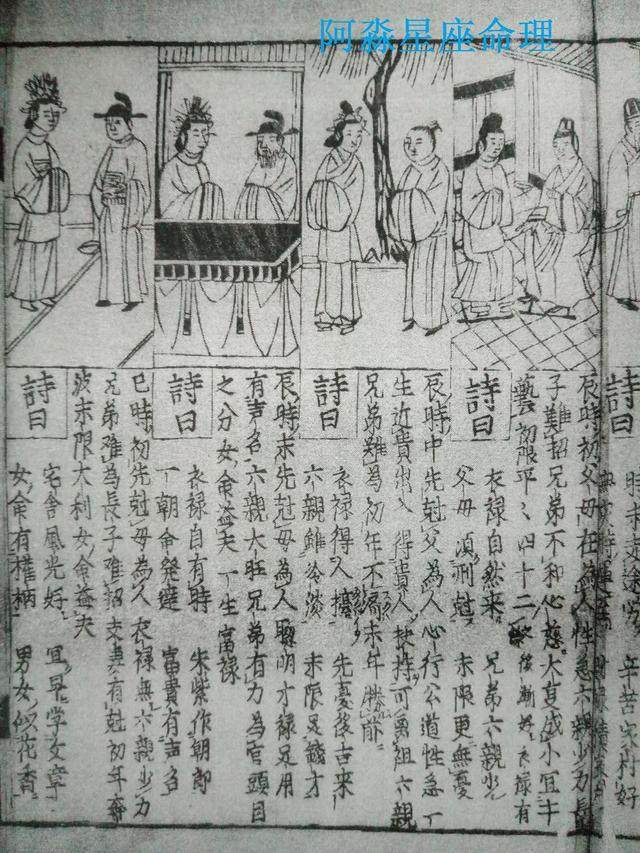 阿淼星座命理
詩曰
辛苦 好
辰時初父母在為人性急六親少力長
子難招兄弟不和心慈大事成小宜牛
藝初限平〻四十二 後漸好衣祿有
詩曰
衣祿自然來 兄弟六親少
父母須刑尅 末限更無憂
辰時中先尅父為人心行公道性急一
生近貴出入得貴人扶持可 祖六親
兄弟難為初年不濟末年勝前
詩曰
衣祿得人擡 先憂後吉來
六親雖冷淡 末限足錢才
辰時末先尅母為人聰明才祿足用
有声名六親大旺兄弟有力為官頭目
之分女命益夫一生富祿
詩曰
衣祿自有時 朱紫作朝郎
一朝命發達 富貴有声名
巳時初先尅母為人衣祿無六親少力
兄弟难為長子难招夫妻有尅初年奔
波末限大利女命益夫
詩曰
宅舍風光好 宜早学文章
女命有權柄 男女似花香